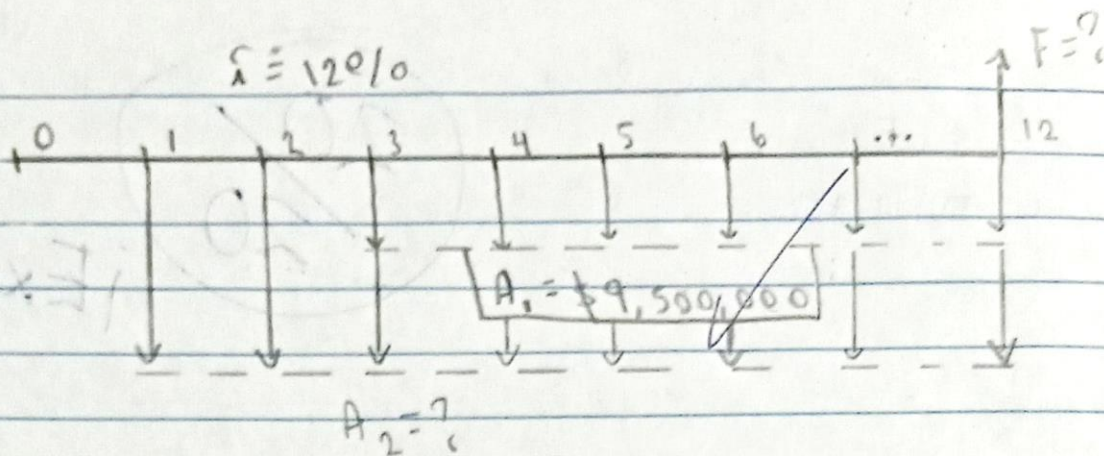 F=?
i = 12%
0 1 2 3 4 5 6 ... 12
A₁ = $9,500,000
A₂ = ?